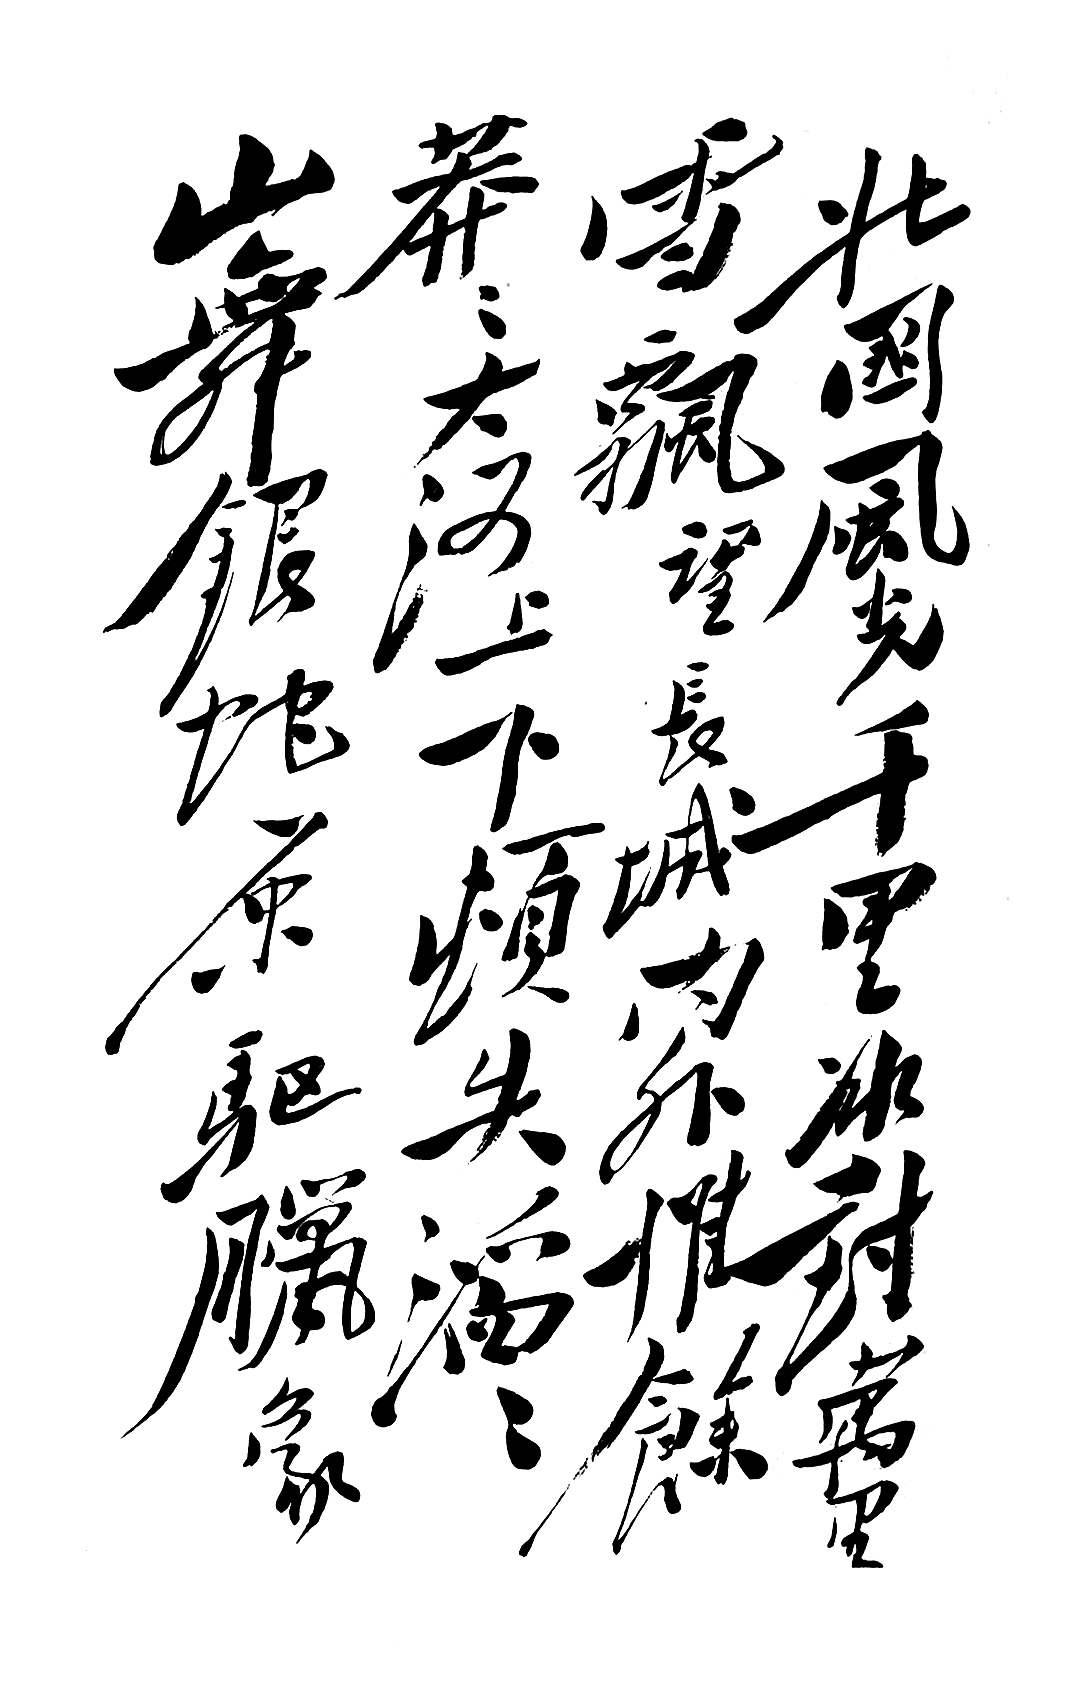 北國風光千里冰封萬里
雪飄望長城内外惟餘
莽〻大河上下頓失滔〻
山舞銀蛇原馳臘象